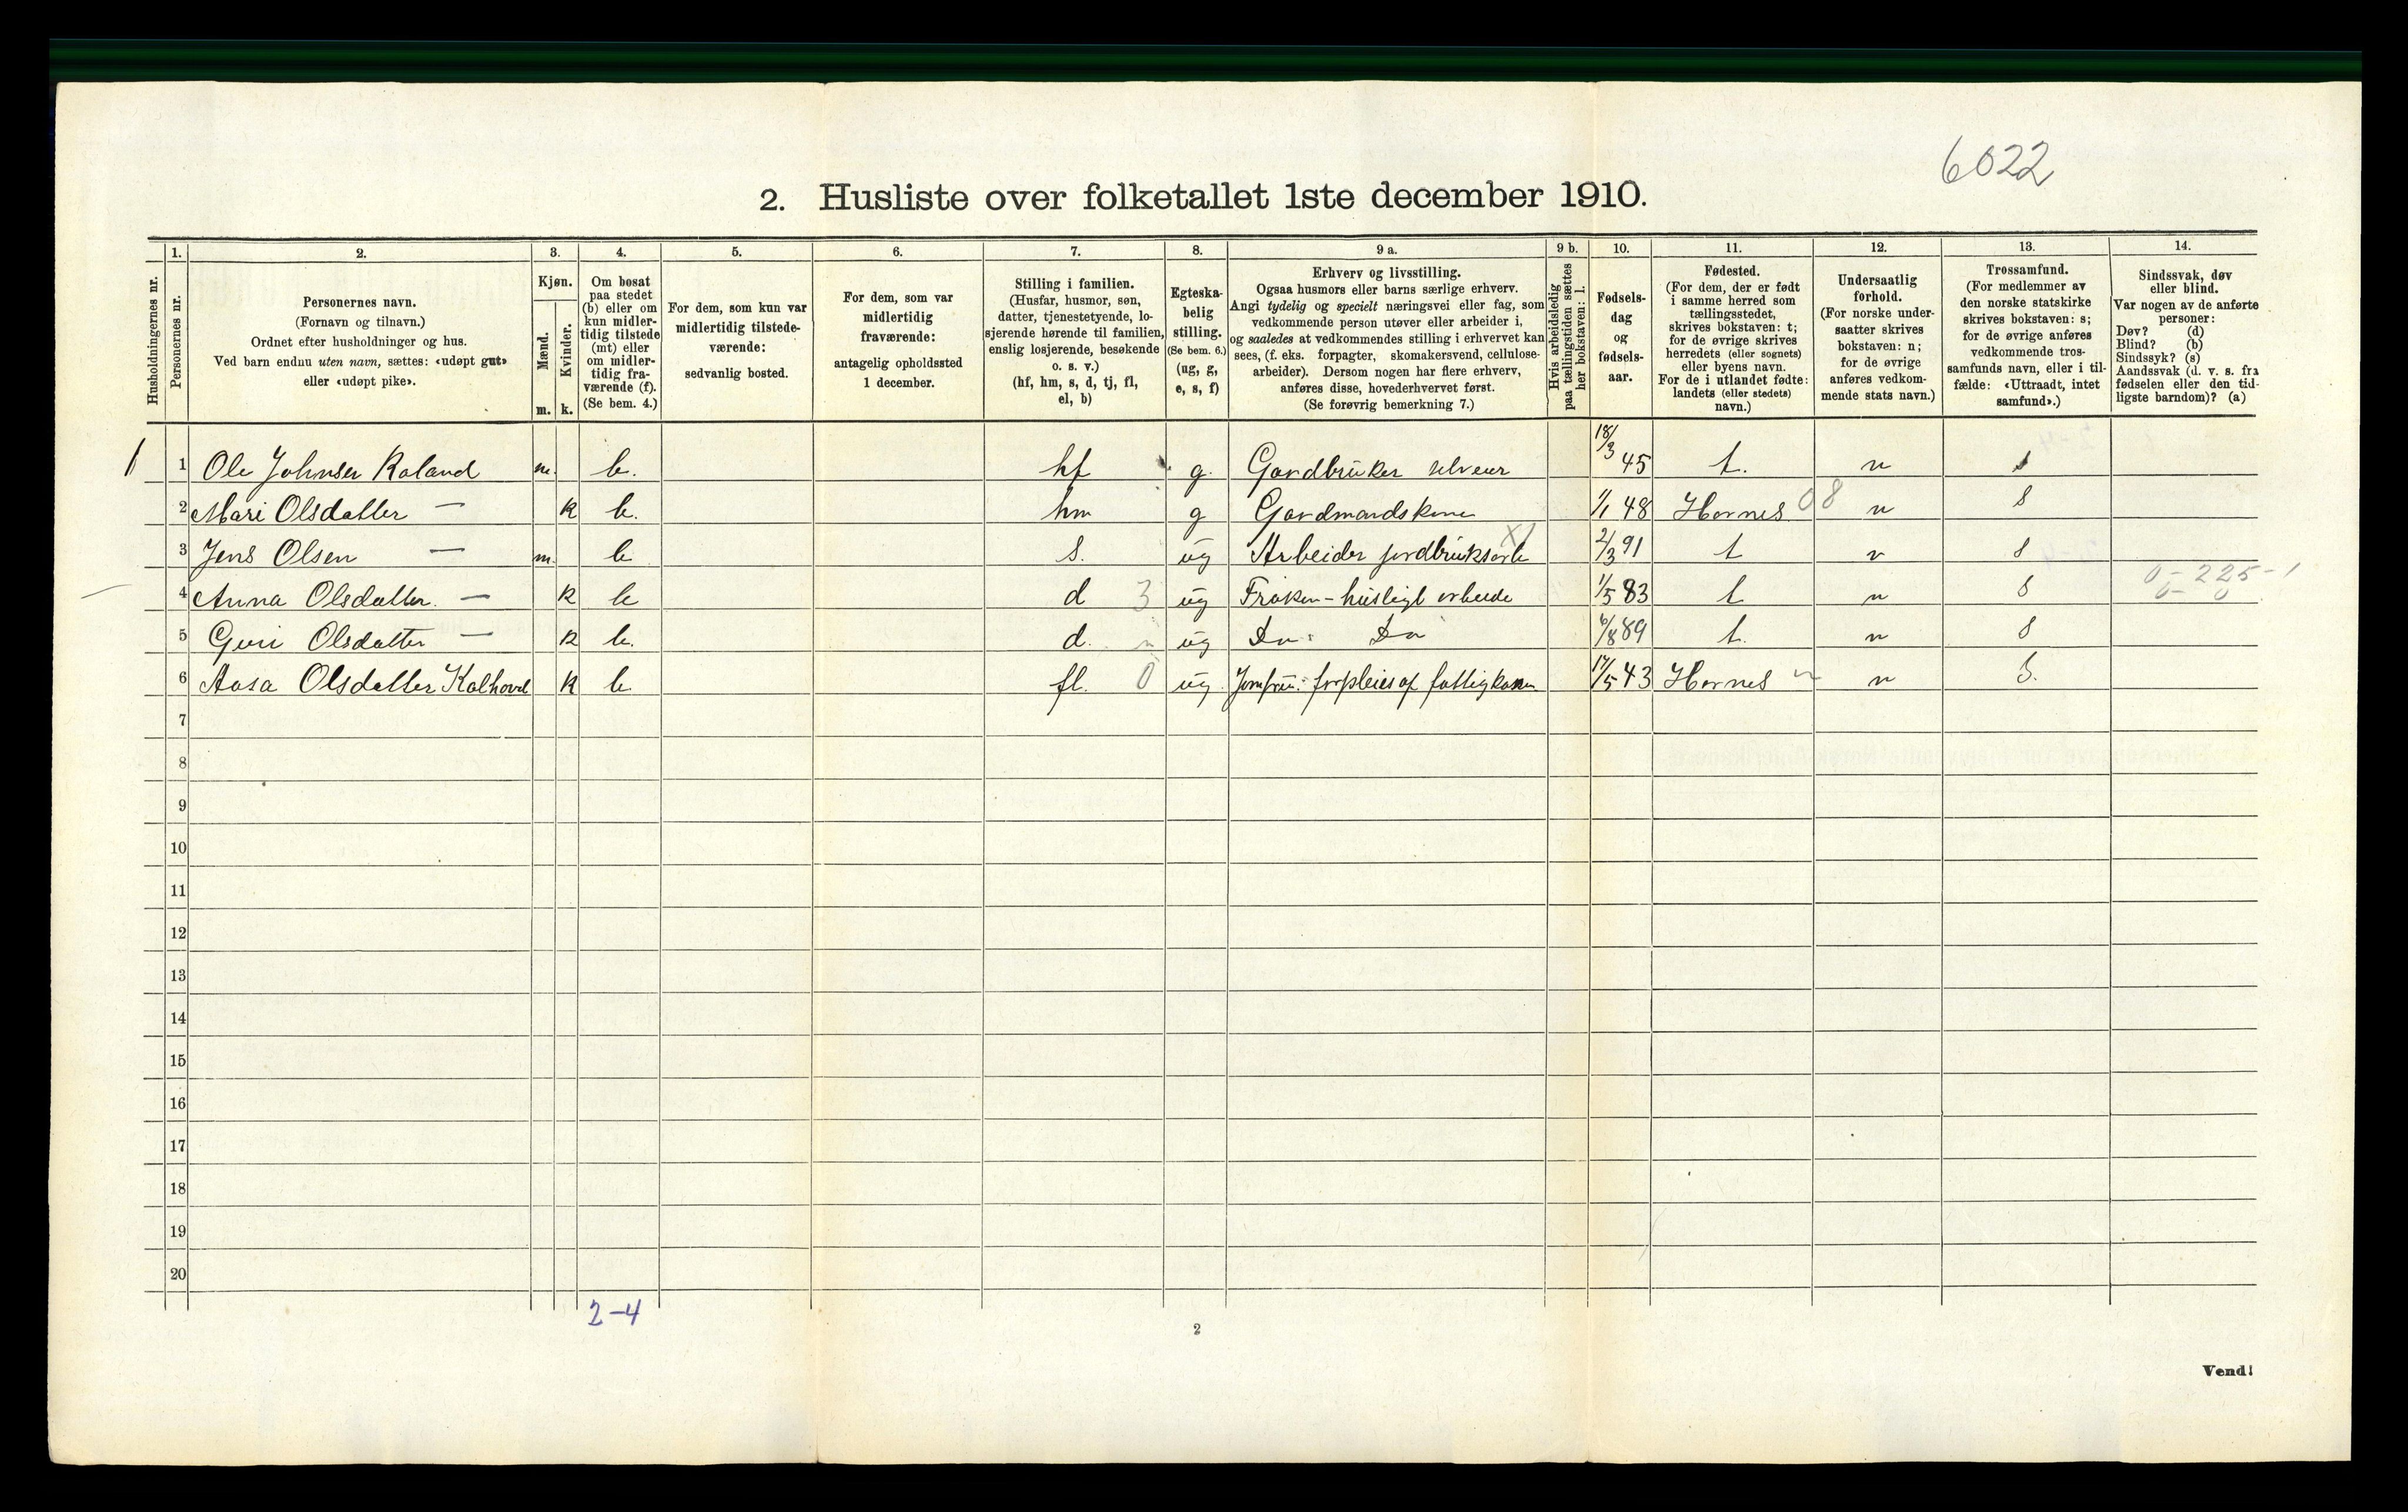 6022
2. Husliste over folketallet 1ste december 1910.
Husholdningernes nr.
1.
Personernes nr.
2.
Personernes navn.
(Fornavn og tilnavn.)
Ordnet efter husholdninger og hus.
Ved barn endnu uten navn, sættes: «udøpt gut»
eller «udøpt pike».
3.
Kjøn.
Mænd.
Kvinder.
m. k.
4.
Om bosat
paa stedet
(b) eller om
kun midler-
tidig tilstede
(mt) eller
om midler-
tidig fra-
værende (f).
(Se bem. 4.)
5.
For dem, som kun var
midlertidig tilstede-
værende:
sedvanlig bosted.
6.
For dem, som var
midlertidig
fraværende:
antagelig opholdssted
1 december.
7.
Stilling i familien.
(Husfar, husmor, søn,
datter, tjenestetyende, lo-
sjerende hørende til familien,
enslig losjerende, besøkende
o. s. v.)
(hf, hm, s, d, tj, fl,
el, b)
8.
Egteska-
belig
stilling.
(Se bem. 6.)
(ug, g,
e, s, f)
9 a.
Erhverv og livsstilling.
Ogsaa husmors eller barns særlige erhverv.
Angi tydelig og specielt næringsvei eller fag, som
vedkommende person utøver eller arbeider i,
og saaledes at vedkommendes stilling i erhvervet kan
sees, (f. eks. forpagter, skomakersvend, cellulose-
arbeider). Dersom nogen har flere erhverv,
anføres disse, hovederhvervet først.
(Se forøvrig bemerkning 7.)
9 b.
Hvis arbeidsledig
paa tællingstiden sættes
her bokstaven: l.
10.
Fødsels-
dag
og
fødsels-
aar.
11.
Fødested.
(For dem, der er født
i samme herred som
tællingsstedet,
skrives bokstaven: t;
for de øvrige skrives
herredets (eller sognets)
eller byens navn.
For de i utlandet fødte:
landets (eller stedets)
navn.)
12.
Undersaatlig
forhold.
(For norske under-
saatter skrives
bokstaven: n;
for de øvrige
anføres vedkom-
mende stats navn.)
13.
Trossamfund.
(For medlemmer av
den norske statskirke
skrives bokstaven: s;
for de øvrige anføres
vedkommende tros-
samfunds navn, eller i til-
fælde: «Uttraadt, intet
samfund».)
14.
Sindssvak, døv
eller blind.
Var nogen av de anførte
personer:
Døv? (d)
Blind? (b)
Sindssyk? (s)
Aandssvak (d. v. s. fra
fødselen eller den tid-
ligste barndom)? (a)
1 1 Ole Johnsen Roland m. b. hf g. Gardbruker selveier 18/3 45 t. n s
2 Mari Olsdatter — k b. hm g Gardmandskone 1/1 48 Hornes 08 n s
3 Jens Olsen — m. b s. ug Arbeider jordbruksarb X1 2/3 91 t n s
4 Anna Olsdatter. — k b d 3 ug Frøken - husligt arbeide 1/5 83 t n s 0-225-1
5 Guri Olsdatter — k b. d. ug Do: Do 6/8 89 t. n s
6 Aasa Olsdatter Kalhovd k b fl. 0 ug. Jomfru: forpleies af fattigkassen 17/5 43 Hornes n S.
7
8
9
10
11
12
13
14
15
16
17
18
19
20
2-4
2
Vend!